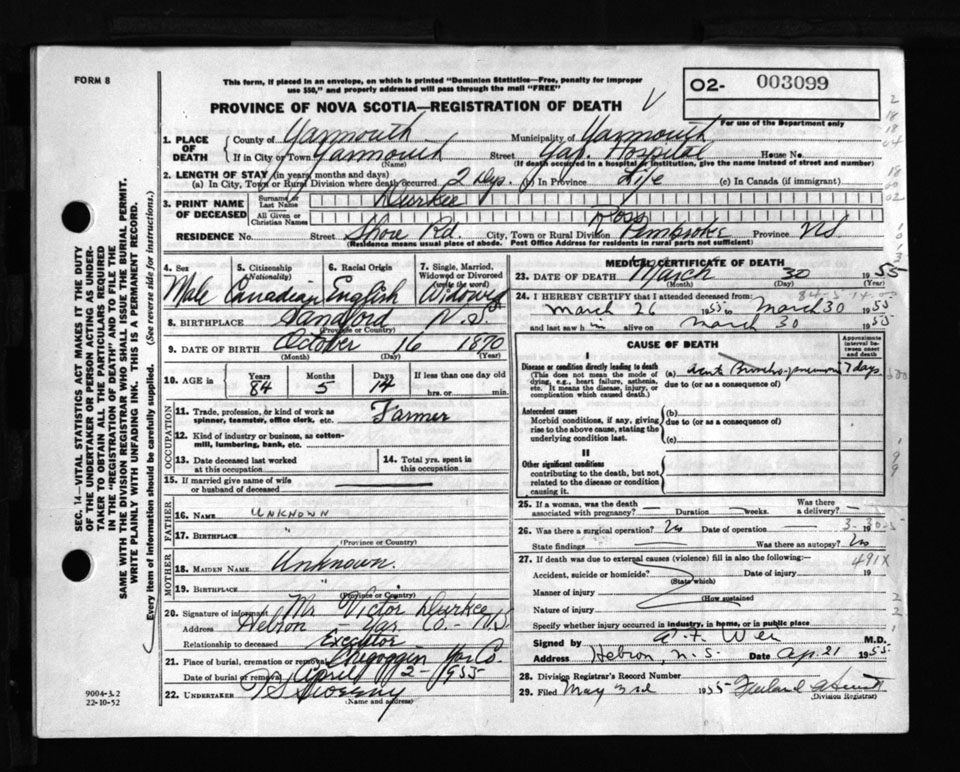 FORM 8
This form, if placed in an envelope, on which is printed "Dominion Statistics—Free, penalty for improper
use $50," and properly addressed will pass through the mail "FREE"
O2- 003099
PROVINCE OF NOVA SCOTIA—REGISTRATION OF DEATH
For use of the Department only
1. PLACE OF DEATH
County of Yarmouth Municipality of Yarmouth
If in City or Town Yarmouth Street Yar. Hospital House No.
(Name) (If death occurred in a hospital or institution, give the name instead of street and number)
2. LENGTH OF STAY (in years, months and days)
(a) In City, Town or Rural Division where death occurred 2 Dys. (b) In Province Life (c) In Canada (if immigrant)
3. PRINT NAME OF DECEASED
Surname or Last Name Durkee
All Given or Christian Names Ross
RESIDENCE No. Street Shore Rd. City, Town or Rural Division Pembroke Province N.S.
(Residence means usual place of abode. Post Office Address for residents in rural parts not sufficient)
4. Sex Male
5. Citizenship (Nationality) Canadian
6. Racial Origin English
7. Single, Married, Widowed or Divorced (write the word) Widowed
8. BIRTHPLACE Sandford N.S.
(Province or Country)
9. DATE OF BIRTH October 16 1870
(Month) (Day) (Year)
10. AGE in Years 84 Months 5 Days 14 If less than one day old
hrs. or min.
OCCUPATION
11. Trade, profession, or kind of work as
spinner, teamster, office clerk, etc. Farmer
12. Kind of industry or business, as cotton-
mill, lumbering, bank, etc.
13. Date deceased last worked
at this occupation
14. Total yrs. spent in
this occupation
15. If married give name of wife
or husband of deceased
FATHER
16. NAME Unknown
17. BIRTHPLACE "
(Province or Country)
MOTHER
18. MAIDEN NAME Unknown.
19. BIRTHPLACE "
(Province or Country)
20. Signature of informant Mr Victor Durkee
Address Hebron - Yar. Co. - N.S.
Relationship to deceased Executor
21. Place of burial, cremation or removal Chegoggin Yar Co.
Date of burial or removal April 2 - 1955
22. UNDERTAKER Sweeny
(Name and address)
MEDICAL CERTIFICATE OF DEATH
23. DATE OF DEATH March 30 1955
(Month) (Day) (Year)
24. I HEREBY CERTIFY that I attended deceased from:
March 26 1955 to March 30 1955
and last saw him alive on March 30 1955
CAUSE OF DEATH
Approximate interval between onset and death
I
Disease or condition directly leading to death
(This does not mean the mode of
dying, e.g., heart failure, asthenia,
etc. It means the disease, injury, or
complication which caused death.)
(a) Acute Broncho-pneumonia 7 days
due to (or as a consequence of)
Antecedent causes
Morbid conditions, if any, giving
rise to the above cause, stating the
underlying condition last.
(b)
due to (or as a consequence of)
(c)
II
Other significant conditions
contributing to the death, but not
related to the disease or condition
causing it.
25. If a woman, was the death
associated with pregnancy? — Duration weeks. Was there
a delivery? -
26. Was there a surgical operation? No Date of operation 19
State findings Was there an autopsy? No
3-30-5
27. If death was due to external causes (violence) fill in also the following:—
491X
Accident, suicide or homicide? Date of injury 19
(State which)
Manner of injury
(How sustained
Nature of injury
Specify whether injury occurred in industry, in home, or in public place
Signed by M.D.
Address Hebron, N.S. Date Ap. 21 1955
28. Division Registrar's Record Number
29. Filed May 3rd 1955
(Division Registrar)
9004-3.2
22-10-52
SEC. 14—VITAL STATISTICS ACT MAKES IT THE DUTY
OF THE UNDERTAKER OR PERSON ACTING AS UNDER-
TAKER TO OBTAIN ALL THE PARTICULARS REQUIRED
IN THE "REGISTRATION OF DEATH" AND TO FILE THE
SAME WITH THE DIVISION REGISTRAR WHO SHALL ISSUE THE BURIAL PERMIT.
WRITE PLAINLY WITH UNFADING INK. THIS IS A PERMANENT RECORD.
Every item of information should be carefully supplied. (See reverse side for instructions.)